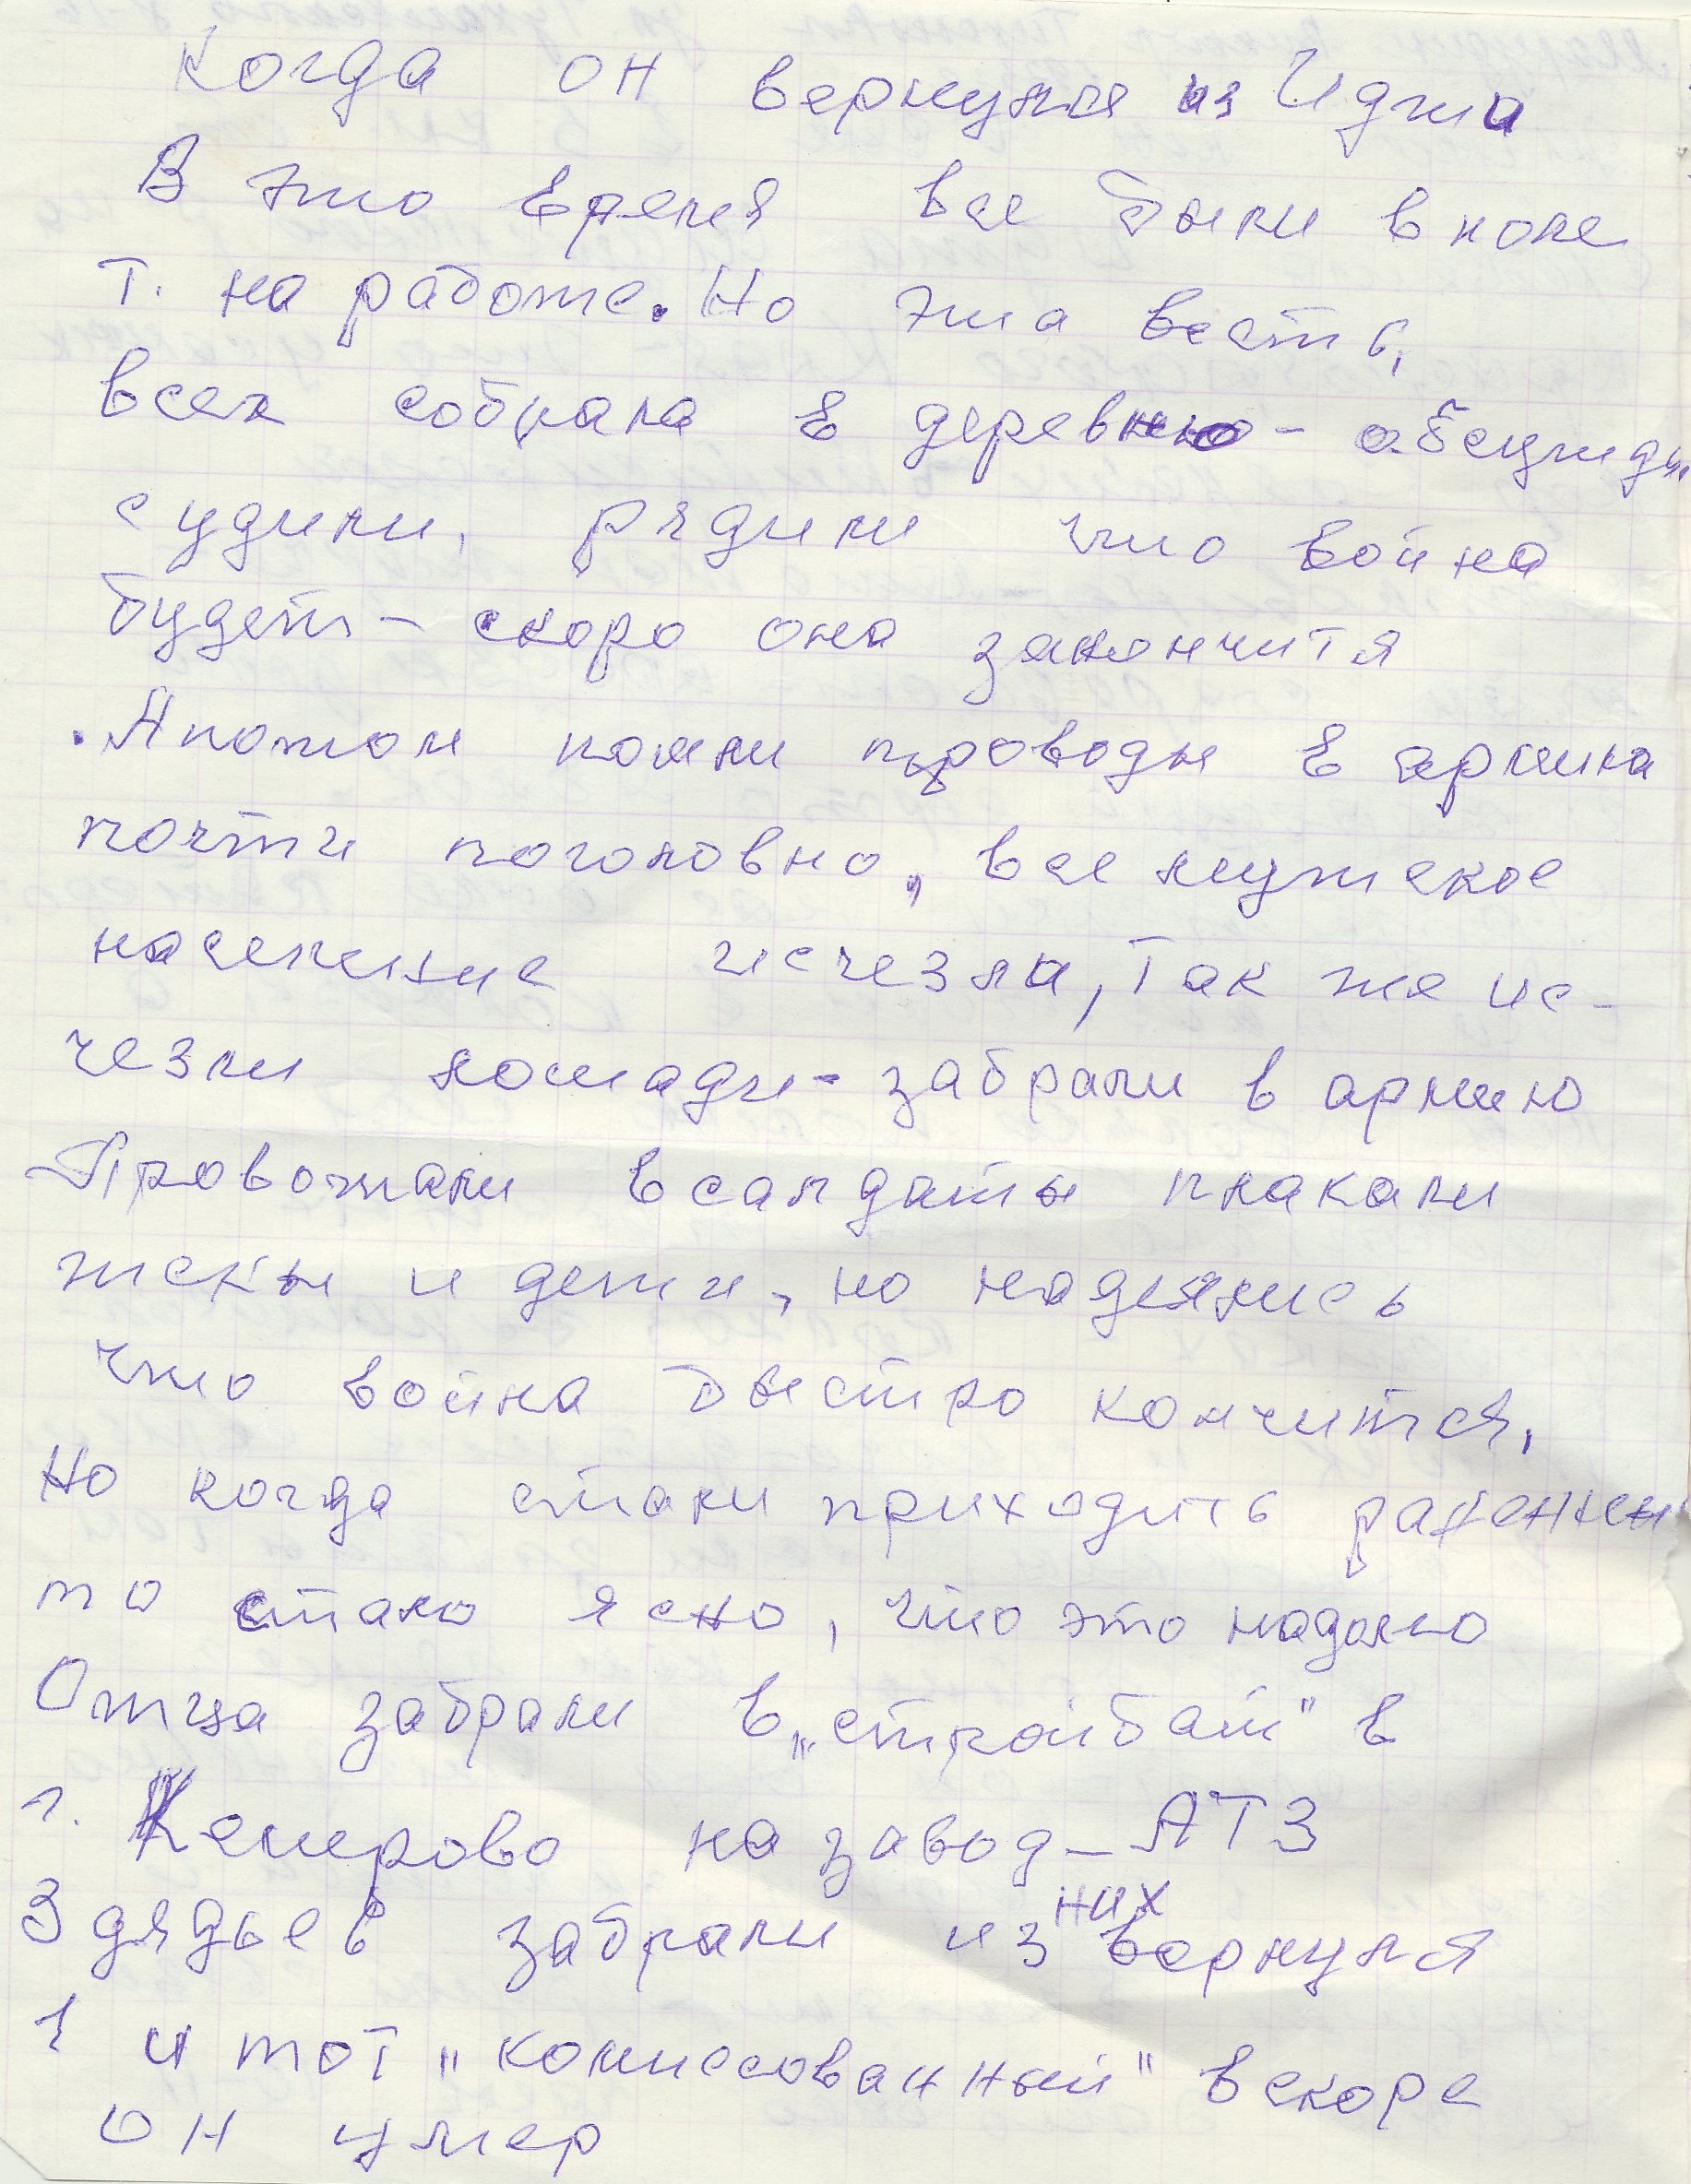 Когда он вернулся из Иджи
В это время все были в поле
т. на работе. Но эта весть,
всех собрала в деревню - обсужд.
судили, рядили что война
будет - скоро она закончится
. А потом пошли проводы в армию
почти поголовно, все мужское
население исчезло, так же ис-
чезли лошади - забрали в армию
Провожали в салдаты плакали
жены и дети, но надеялись
что война быстро кончится,
Но когда стали приходить раненные
то стало ясно, что это надолго
Отца забрали в „стройбат" в
г. Кемерово на завод - АТЗ
3 дядьев забрали из них вернулся
1 и тот „комиссованный" вскоре
он умер